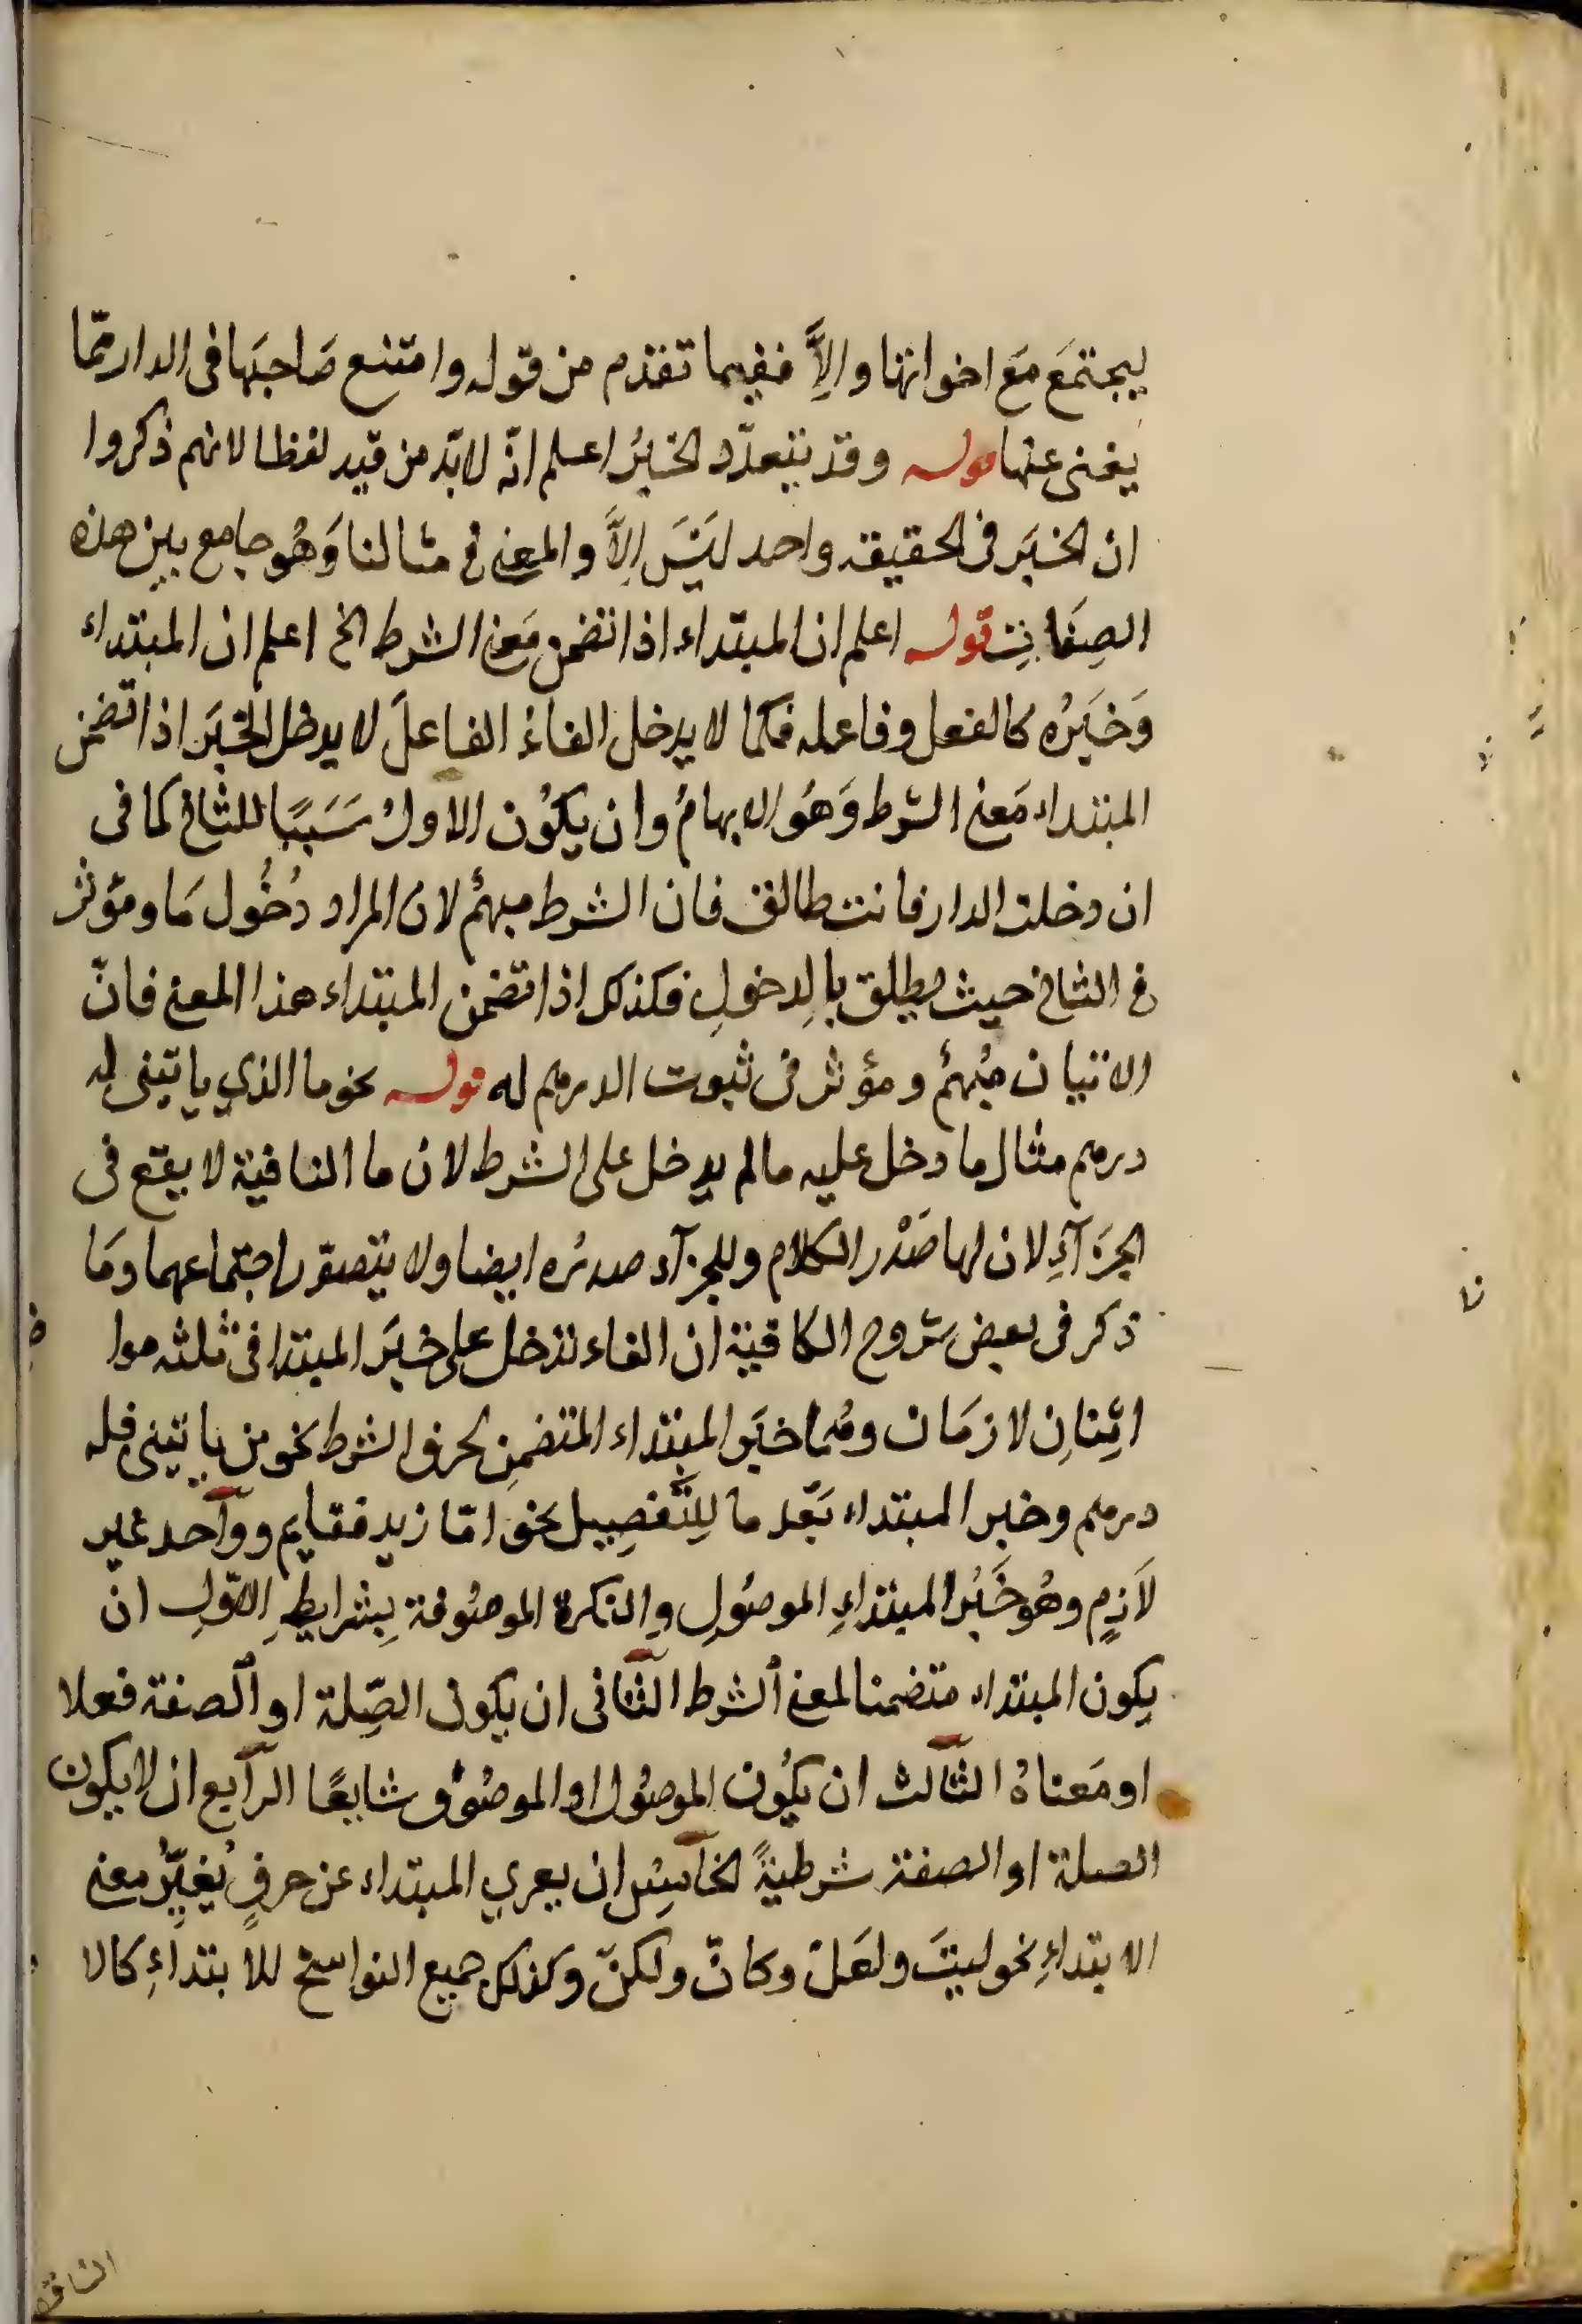 ليجتمَع مَع اخواتها والاَّ ففيما تقدم من قوله وامتنع صَاحبَها فى الدار مّما
يغنى عنها قوله وقد يتعدّد الخبرُ اعلم انّه لابّد من قيد لفظا لانهم ذكروا
ان الخبَر فى الحقيقه واحد ليَسَ اِلاَّ والمعنى فى مثالنا وَهُو جامع بين هذه
الصِفَاتِ قوله اعلم ان المبتداء اذا تضمن مَعنى الشرط الخ اعلم ان المبتداء
وَخبَرُه كالفعل وفاعله فكما لا يدخل الفاءُ الفاعلَ لا يدخل الخبَر اذا تضمن
المبتداء مَعنى الشرط وَهُو الابهامُ وان يكوُن الاولُ سَببًا للثانى كما فى
ان دخلت الدار فانت طالق فان الشرط مبهمُ لان المراد دُخُول مَا ومؤثر
فى الثانى حيث يطلق بالدخولِ فكذلك اذا تضمن المبتداء هذا المعنى فانّ
الاتيان مُبهمُ ومؤثر فى ثبوت الدرهم له قوله نحو ما الذي ياتينى له
درهم مثال ما دخل عليه مالم يدخل على الشرط لان ما النافية لا يقع فى
الجزَآءِ لان لها صَدْر الكلام وللجزآء صدرُه ايضا ولا يتصوّر اجتماعهما ومَا
ذكر فى بعض شروح الكافية ان الفاء تدخل على خبَر المبتدا فى ثلثه موا
اثِنانِ لازمَان وهُما خبَر المبتداء المتضمنِ لحرف الشرط نحو من ياتينى فله
درهم وخبر المبتداء بَعْد ما لِلتَّفصِيل نحو امّا زيد فقايم وواَحد غير
لاَزمٍ وهُو خَبُر المبتداءِ الموصُولِ والنكرة الموصُوفة بِشرايطِ الاوّلِ ان
يكون المبتداء متضمنا لمعنى الشرط الثّانى ان يكول الصِّلة او الصفة فعلا
او مَعناهُ الثالث ان يكُون الموصُول او الموصُوُف شايعًا الرّابع ان لا يكون
الصلة او الصفة شرطيةً الخامِسُ ان يعري المبتداء عن حرفٍ يُغيّرُ معنى
الابتداءِ نحو ليتَ ولعَلّ وكانّ ولكنّ وكذلك جميع النواسخ للابتداءِ كالا